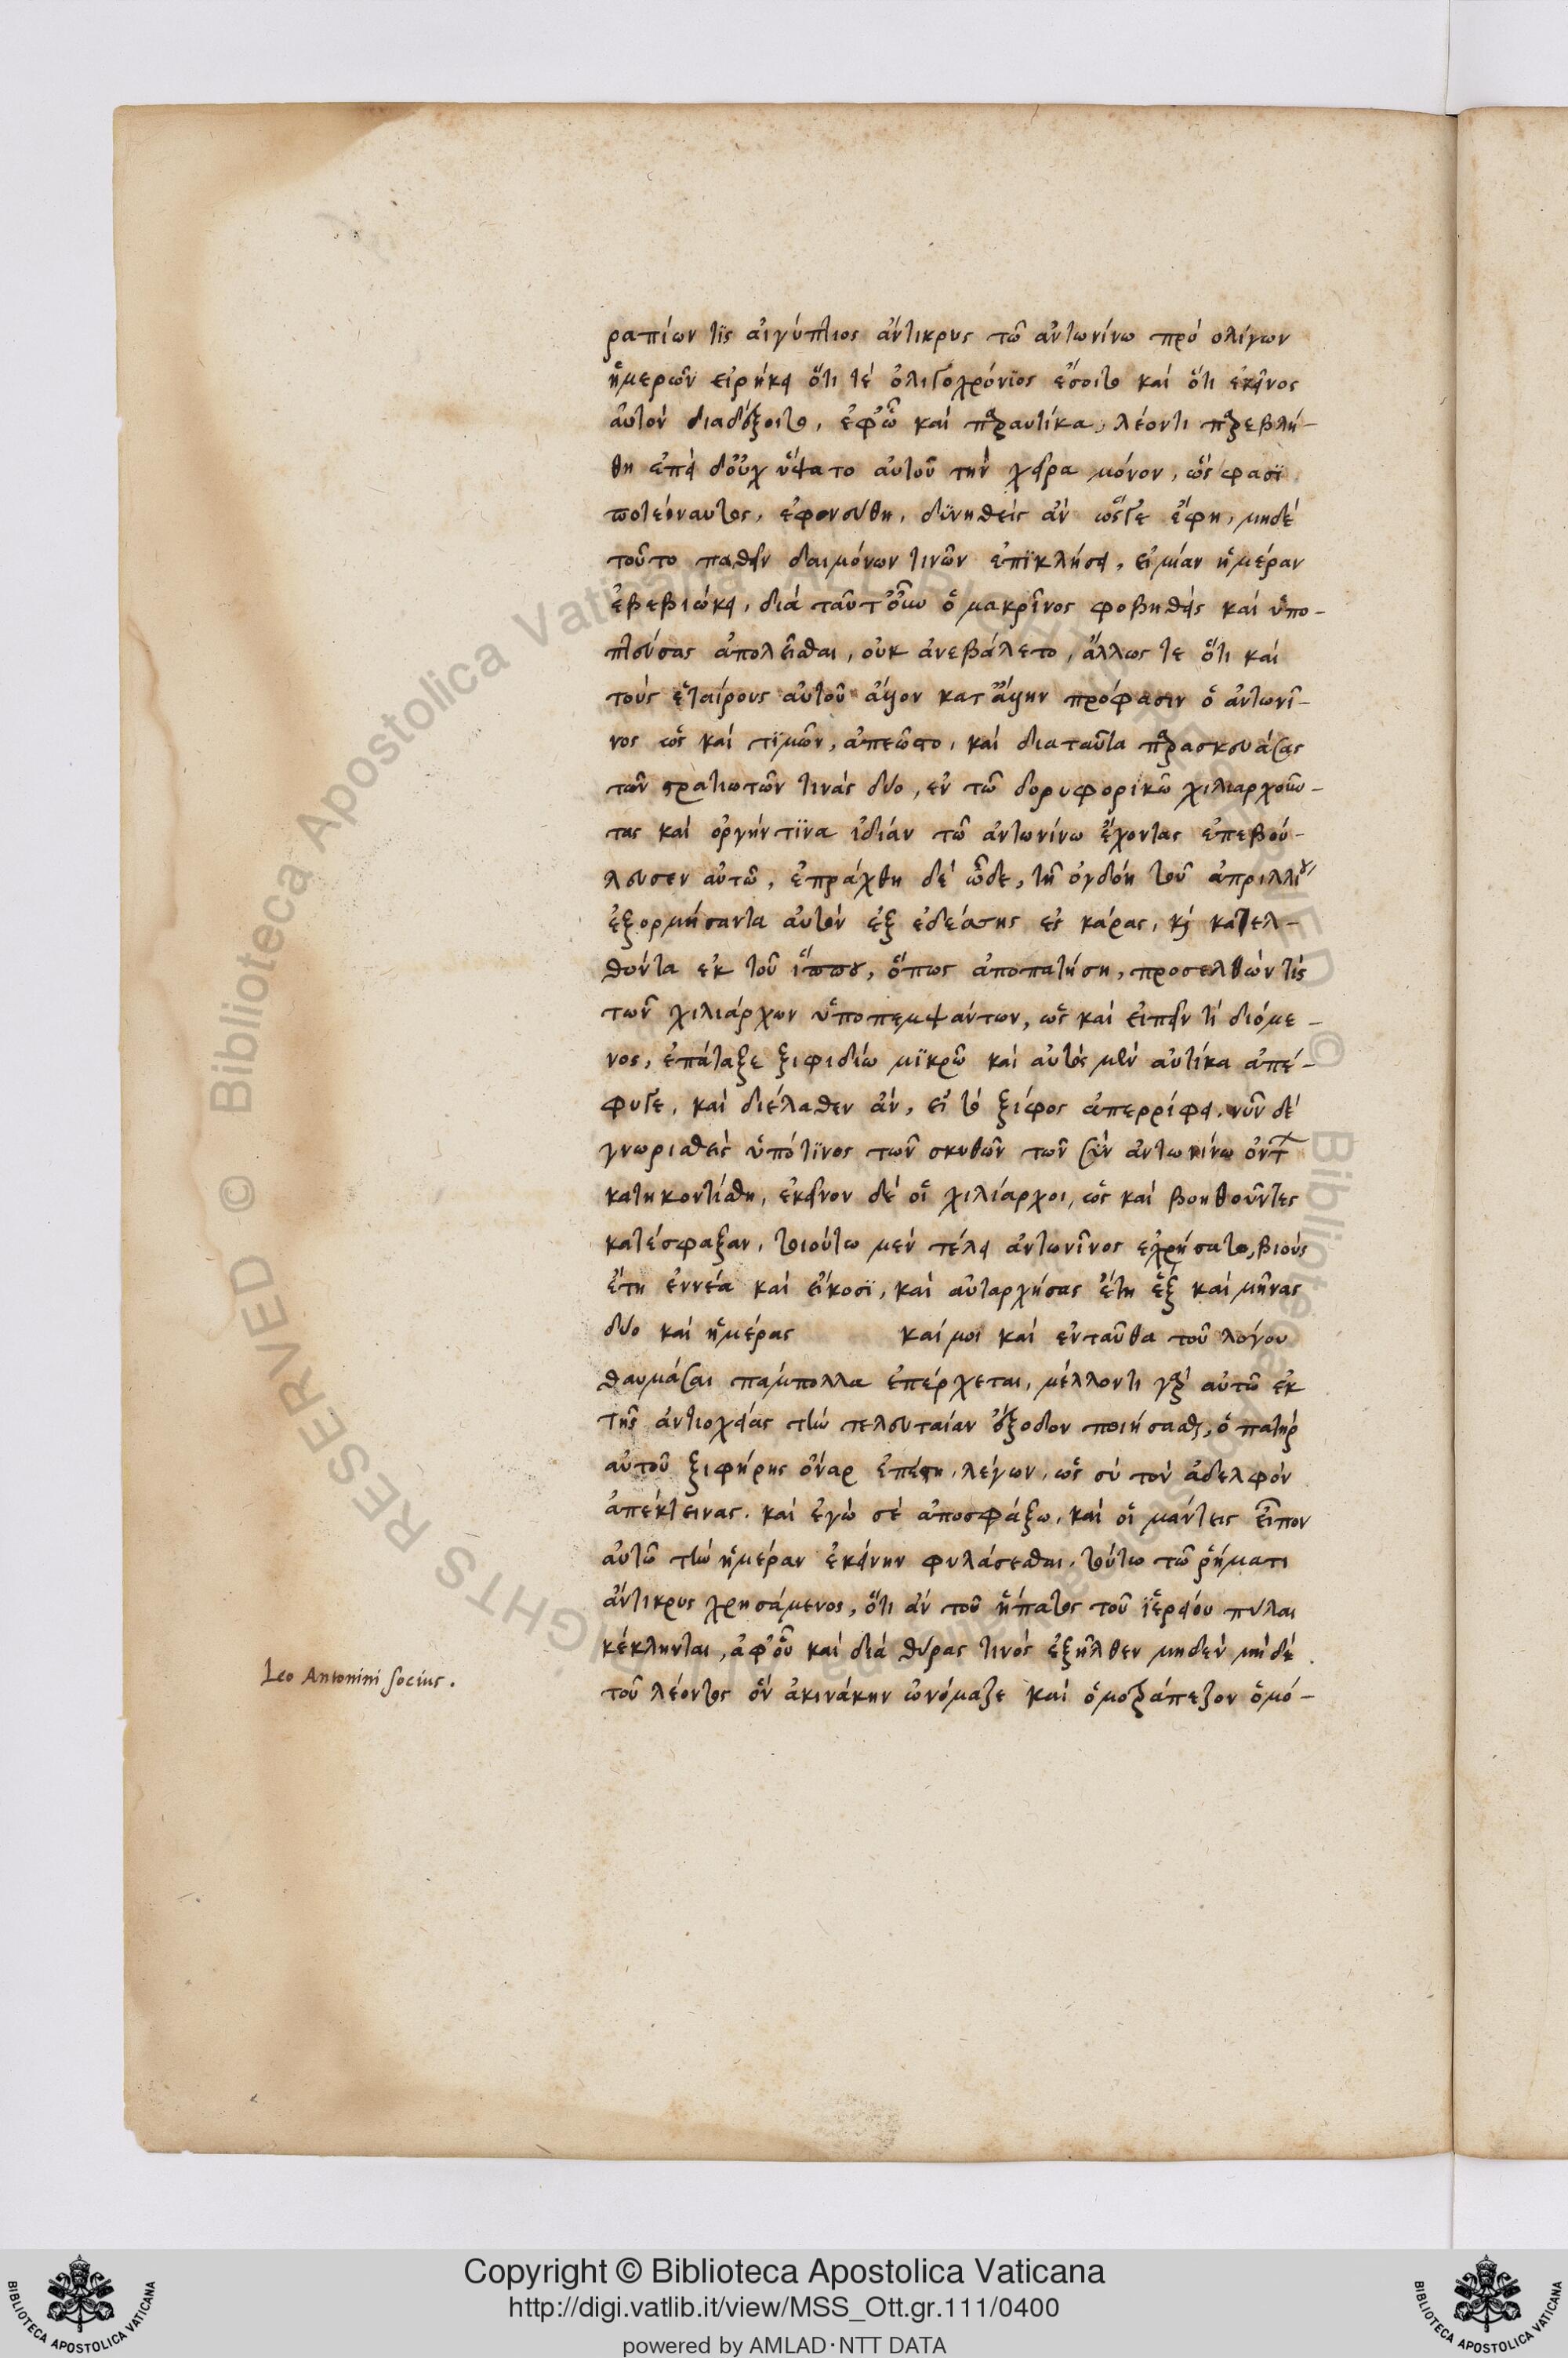 ραπίων τὶς αἰγύπτιος ἄντικρυς τῶ ἀντωνίνω πρὸ ολίγων
ἡμερῶν εἰρήκει ὅτι τέ ὀλιγοχρόνιος ἔσοιτο καὶ ὅτι εκεῖνος
αὐτὸν διαδέξοιτο, ἐφ' ᾧ καὶ παραυτίκα, λέοντι παρεβλή-
θη επεὶ δ' οὐχ ὕψατο αὐτοῦ τὴν χεῖρα μόνον, ὥς φασι
ἐφονεύθη, δυνηθεὶς ἂν ὥς γε ἔφη, μηδὲ
τοῦτο παθεῖν δαιμόνων τινῶν ἐπικλήσει, εἰ μίαν ἡμέραν
ἐβεβιώκει, διὰ ταῦτ' οὖν ὁ μακρῖνος φοβηθεὶς καὶ ὑπο-
πτεύσας ἀπολεῖσθαι, οὐκ ἀνεβάλετο, ἄλλως τε ὅτι καὶ
τοὺς ἑταίρους αὐτοῦ ἄλλον κατ' ἄλλην πρόφασιν ὁ ἀντωνῖ-
νος ὡς καὶ τιμῶν, ἀπεῶστο, καὶ διαταῦτα παρασκευάσας
τῶν στρατιωτῶν τινὰς δυο, ἐν τῶ δορυφορικῶ χιλιαρχοῦν-
τας καὶ ὀργὴν τινα ἰδίαν τῶ ἀντωνίνω ἔχοντας ἐπεβού-
λευσεν αὐτῶ, ἐπράχθη δὲ ὧδε, τῆ ὀγδόη τοῦ ἀπριλλίου
ἐξορμήσαντα αὐτὸν ἐξ ἐδέσσης ἐς κάρας, καὶ κατελ-
θόντα ἐκ τοῦ ἵππου, ὅπως ἀποπατήση, προσελθών τὶς
τῶν χιλιάρχων ὑποπεμψάντων, ὡς καὶ εἰπεῖν τί διόμε-
νος, ἐπάταξε ξιφιδίω μικρῶ καὶ αὐτὸς μὲν αὐτίκα ἀπέ-
φυγε, καὶ διέλαθεν ἄν, εἰ τὸ ξίφος ἀπερρίφει. νῦν δὲ
γνωρισθεὶς ὑπό τινος τῶν σκυθῶν τῶν σὺν ἀντωνίνω ὄντων
κατηκοντίσθη, ἐκεῖνον δὲ οἱ χιλίαρχοι, ὡς καὶ βοηθοῦντες
κατέσφαξαν, τοιούτω μὲν τέλει ἀντωνῖνος ἐχρήσατο, βιοὺς
ἔτη ἐννέα καὶ εἴκοσι, καὶ αὐταρχήσας ἔτη ἓξ καὶ μῆνας
δυο καὶ ἡμέρας καί μοι καὶ ἐνταῦθα τοῦ λογου
θαυμάσαι παμπολλα ἐπέρχεται, μέλλοντι γὰρ αὐτῶ ἐκ
τῆς ἀντιοχείας τὴν τελευταίαν ἔξοδον ποιήσασθαι, ὁ πατὴρ
αὐτοῦ ξιφήρης ὄναρ ἐπέστη, λέγων, ὡς σὺ τὸν ἀδελφὸν
ἀπέκτεινας. καὶ ἐγὼ σὲ ἀποσφάξω, καὶ οἱ μάντεις εἶπον
αὐτῶ τὴν ἡμέραν ἐκείνην φυλάσεσθαι. τούτω τῶ ῥήματι
ἄντικρυς χρησάμενος, ὅτι ἂν τοῦ ἥπατος τοῦ ἱερείου πυλαι
κέκληνται, ἀφ' οὗ καὶ διὰ θύρας τινὸς ἐξῆλθεν μηδὲν μὴ δὲ
Leo Antonini socius.
τοῦ λέοντος ὃν ἀκινάκην ὠνόμαζε καὶ ὁμοτράπεζον ὁμό-